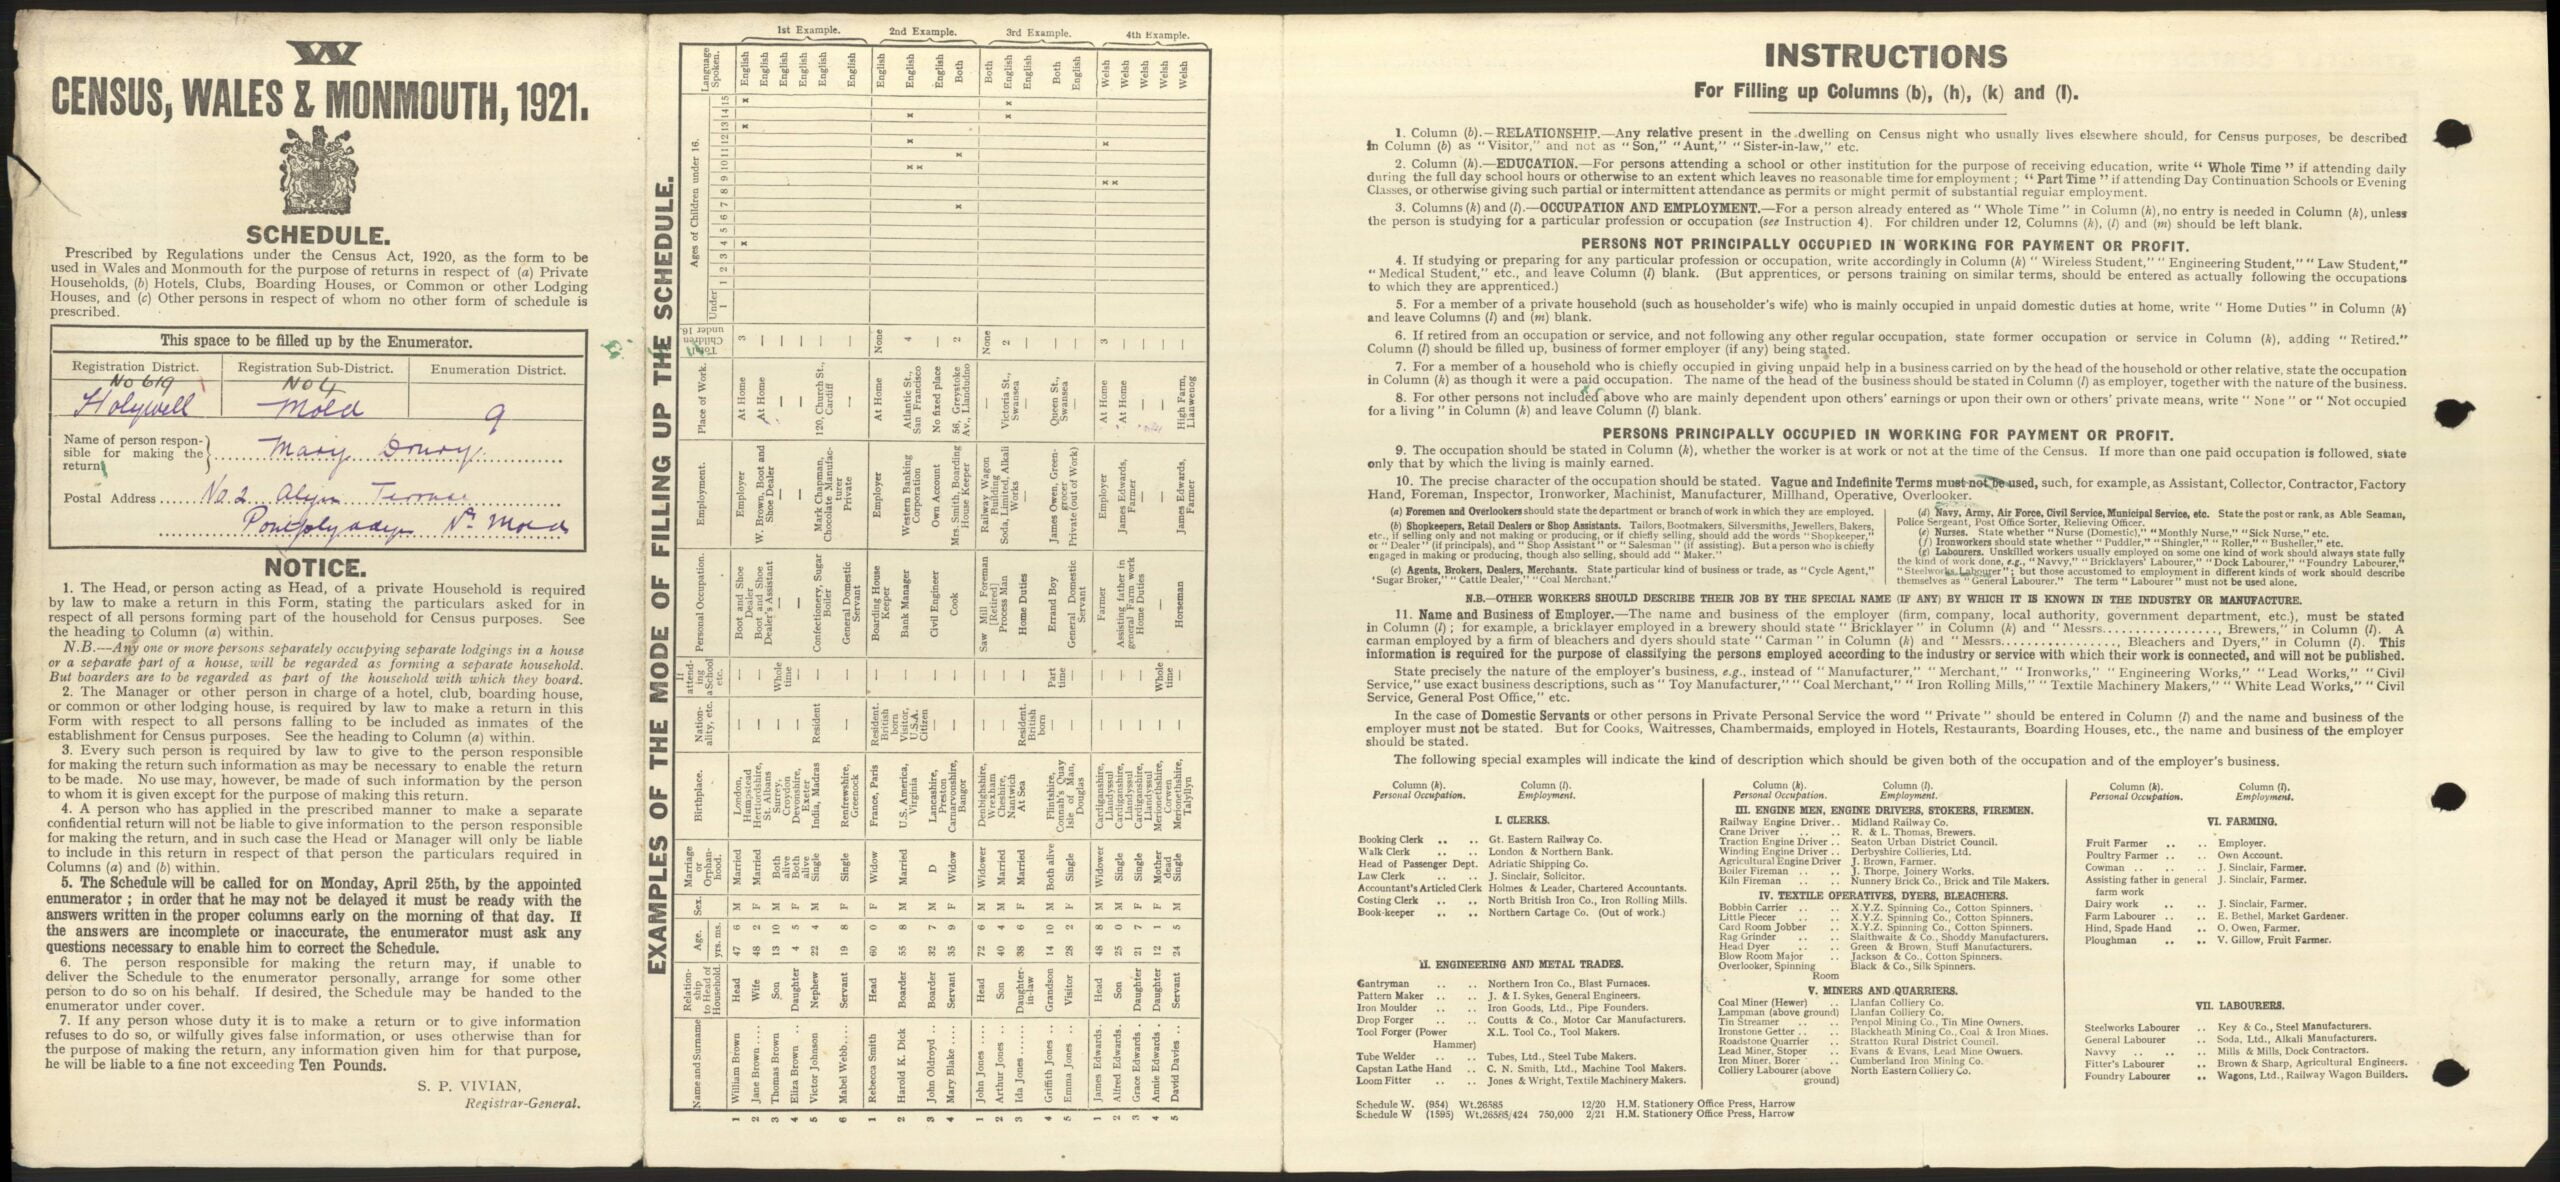 W
CENSUS, WALES & MONMOUTH, 1921.
SCHEDULE.
Prescribed by Regulations under the Census Act, 1920, as the form to be
used in Wales and Monmouth for the purpose of returns in respect of (a) Private
Households, (b) Hotels, Clubs, Boarding Houses, or Common or other Lodging
Houses, and (c) Other persons in respect of whom no other form of schedule is
prescribed.
This space to be filled up by the Enumerator.
Registration District. Registration Sub-District. Enumeration District.
No 619 No 4
Holywell Mold 9
Name of person respon-
sible for making the
return
Mary Drury
Postal Address No. 2 Alyn Terrace
Nr Mold
NOTICE.
1. The Head, or person acting as Head, of a private Household is required
by law to make a return in this Form, stating the particulars asked for in
respect of all persons forming part of the household for Census purposes. See
the heading to Column (a) within.
N.B.—Any one or more persons separately occupying separate lodgings in a house
or a separate part of a house, will be regarded as forming a separate household.
But boarders are to be regarded as part of the household with which they board.
2. The Manager or other person in charge of a hotel, club, boarding house,
or common or other lodging house, is required by law to make a return in this
Form with respect to all persons falling to be included as inmates of the
establishment for Census purposes. See the heading to Column (a) within.
3. Every such person is required by law to give to the person responsible
for making the return such information as may be necessary to enable the return
to be made. No use may, however, be made of such information by the person
to whom it is given except for the purpose of making this return.
4. A person who has applied in the prescribed manner to make a separate
confidential return will not be liable to give information to the person responsible
for making the return, and in such case the Head or Manager will only be liable
to include in this return in respect of that person the particulars required in
Columns (a) and (b) within.
5. The Schedule will be called for on Monday, April 25th, by the appointed
enumerator ; in order that he may not be delayed it must be ready with the
answers written in the proper columns early on the morning of that day. If
the answers are incomplete or inaccurate, the enumerator must ask any
questions necessary to enable him to correct the Schedule.
6. The person responsible for making the return may, if unable to
deliver the Schedule to the enumerator personally, arrange for some other
person to do so on his behalf. If desired, the Schedule may be handed to the
enumerator under cover.
7. If any person whose duty it is to make a return or to give information
refuses to do so, or wilfully gives false information, or uses otherwise than for
the purpose of making the return, any information given him for that purpose,
he will be liable to a fine not exceeding Ten Pounds.
S. P. VIVIAN,
Registrar-General.
EXAMPLES OF THE MODE OF FILLING UP THE SCHEDULE.
Name and Surname Relation-ship to Head of Household. Age. yrs. ms. Sex. Marriage or Orphan-hood. Birthplace. Nation-ality, etc. If attend-ing a School etc. Personal Occupation. Employment. Place of Work. Total Children under 16. Ages of Children under 16. Under 1 1 2 3 4 5 6 7 8 9 10 11 12 13 14 15 Language Spoken.
1st Example.
1 William Brown Head 47 6 M Married London, Hampstead — — Boot and Shoe Dealer Employer At Home 3 x x x English
2 Jane Brown.... Wife 48 2 F Married Hertfordshire, St. Albans — — Boot and Shoe Dealer's Assistant W. Brown, Boot and Shoe Dealer At Home — English
3 Thomas Brown Son 13 10 M Both alive Surrey, Croydon — Whole time — — — — English
4 Eliza Brown .. Daughter 4 5 F Both alive Devonshire, Exeter — — — — — — English
5 Victor Johnson Nephew 22 4 M Single India, Madras Resident — Confectionery, Sugar Boiler Mark Chapman, Chocolate Manufac-turer 120, Church St., Cardiff — English
6 Mabel Webb.... Servant 19 8 F Single Renfrewshire, Greenock — — General Domestic Servant Private — — English
2nd Example.
1 Rebecca Smith Head 60 0 F Widow France, Paris Resident. British born — Boarding House Keeper Employer At Home None English
2 Harold K. Dick Boarder 55 8 M Married U.S. America, Virginia Visitor, U.S.A. Citizen — Bank Manager Western Banking Corporation Atlantic St., San Francisco 4 x x x x English
3 John Oldroyd .. Boarder 32 7 M D Lancashire, Preston — — Civil Engineer Own Account No fixed place — English
4 Mary Blake .... Servant 35 9 F Widow Carnarvonshire, Bangor — — Cook Mrs. Smith, Boarding House Keeper 56, Greystoke Av., Llandudno 2 x x Both
3rd Example.
1 John Jones .... Head 72 6 M Widower Denbighshire, Wrexham — — Saw Mill Foreman [Retired] Railway Wagon Building — None Both
2 Arthur Jones .. Son 40 4 M Married Cheshire, Nantwich — — Process Man Soda, Limited, Alkali Works Victoria St., Swansea 2 x x English
3 Ida Jones ...... Daughter-in-law 38 6 F Married At Sea Resident. British born — Home Duties — — — English
4 Griffith Jones .. Grandson 14 10 M Both alive Flintshire, Connah's Quay — Part time Errand Boy James Owen, Green-grocer Queen St., Swansea — Both
5 Emma Jones .. Visitor 28 2 F Single Isle of Man, Douglas — — General Domestic Servant Private (out of Work) — — English
4th Example.
1 James Edwards. Head 48 8 M Widower Cardiganshire, Llandyssul — — Farmer Employer At Home 3 x x x Welsh
2 Alfred Edwards. Son 25 0 M Single Cardiganshire, Llandyssul — — Assisting father in general Farm work James Edwards, Farmer At Home — Welsh
3 Grace Edwards. Daughter 21 7 F Single Cardiganshire, Llandyssul — — Home Duties — — — Welsh
4 Annie Edwards . Daughter 12 1 F Mother dead Merionethshire, Corwen — Whole time — — — — Welsh
5 David Davies .. Servant 24 5 M Single Merionethshire, Talyllyn — — Horseman James Edwards, Farmer High Farm, Llanwenog — Welsh
INSTRUCTIONS
For Filling up Columns (b), (h), (k) and (l).
1. Column (b).—RELATIONSHIP.—Any relative present in the dwelling on Census night who usually lives elsewhere should, for Census purposes, be described
in Column (b) as "Visitor," and not as "Son," "Aunt," "Sister-in-law," etc.
2. Column (h).—EDUCATION.—For persons attending a school or other institution for the purpose of receiving education, write "Whole Time" if attending daily
during the full day school hours or otherwise to an extent which leaves no reasonable time for employment ; "Part Time" if attending Day Continuation Schools or Evening
Classes, or otherwise giving such partial or intermittent attendance as permits or might permit of substantial regular employment.
3. Columns (k) and (l).—OCCUPATION AND EMPLOYMENT.—For a person already entered as "Whole Time" in Column (h), no entry is needed in Column (k), unless
the person is studying for a particular profession or occupation (see Instruction 4). For children under 12, Columns (k), (l) and (m) should be left blank.
PERSONS NOT PRINCIPALLY OCCUPIED IN WORKING FOR PAYMENT OR PROFIT.
4. If studying or preparing for any particular profession or occupation, write accordingly in Column (k) "Wireless Student," "Engineering Student," "Law Student,"
"Medical Student," etc., and leave Column (l) blank. (But apprentices, or persons training on similar terms, should be entered as actually following the occupations
to which they are apprenticed.)
5. For a member of a private household (such as householder's wife) who is mainly occupied in unpaid domestic duties at home, write "Home Duties" in Column (k)
and leave Columns (l) and (m) blank.
6. If retired from an occupation or service, and not following any other regular occupation, state former occupation or service in Column (k), adding "Retired."
Column (l) should be filled up, business of former employer (if any) being stated.
7. For a member of a household who is chiefly occupied in giving unpaid help in a business carried on by the head of the household or other relative, state the occupation
in Column (k) as though it were a paid occupation. The name of the head of the business should be stated in Column (l) as employer, together with the nature of the business.
8. For other persons not included above who are mainly dependent upon others' earnings or upon their own or others' private means, write "None" or "Not occupied
for a living" in Column (k) and leave Column (l) blank.
PERSONS PRINCIPALLY OCCUPIED IN WORKING FOR PAYMENT OR PROFIT.
9. The occupation should be stated in Column (k), whether the worker is at work or not at the time of the Census. If more than one paid occupation is followed, state
only that by which the living is mainly earned.
10. The precise character of the occupation should be stated. Vague and Indefinite Terms must not be used, such, for example, as Assistant, Collector, Contractor, Factory
Hand, Foreman, Inspector, Ironworker, Machinist, Manufacturer, Millhand, Operative, Overlooker.
(a) Foremen and Overlookers should state the department or branch of work in which they are employed.
(b) Shopkeepers, Retail Dealers or Shop Assistants. Tailors, Bootmakers, Silversmiths, Jewellers, Bakers,
etc., if selling only and not making or producing, or if chiefly selling, should add the words "Shopkeeper,"
or "Dealer" (if principals), and "Shop Assistant" or "Salesman" (if assisting). But a person who is chiefly
engaged in making or producing, though also selling, should add "Maker."
(c) Agents, Brokers, Dealers, Merchants. State particular kind of business or trade, as "Cycle Agent,"
"Sugar Broker," "Cattle Dealer," "Coal Merchant."
(d) Navy, Army, Air Force, Civil Service, Municipal Service, etc. State the post or rank, as Able Seaman,
Police Sergeant, Post Office Sorter, Relieving Officer.
(e) Nurses. State whether "Nurse (Domestic)," "Monthly Nurse," "Sick Nurse," etc.
(f) Ironworkers should state whether "Puddler," "Shingler," "Roller," "Busheller," etc.
(g) Labourers. Unskilled workers usually employed on some one kind of work should always state fully
the kind of work done, e.g., "Navvy," "Bricklayers' Labourer," "Dock Labourer," "Foundry Labourer,"
"Steelworks Labourer" ; but those accustomed to employment in different kinds of work should describe
themselves as "General Labourer." The term "Labourer" must not be used alone.
N.B.—OTHER WORKERS SHOULD DESCRIBE THEIR JOB BY THE SPECIAL NAME (IF ANY) BY WHICH IT IS KNOWN IN THE INDUSTRY OR MANUFACTURE.
11. Name and Business of Employer.—The name and business of the employer (firm, company, local authority, government department, etc.), must be stated
in Column (l) ; for example, a bricklayer employed in a brewery should state "Bricklayer" in Column (k) and "Messrs................, Brewers," in Column (l). A
carman employed by a firm of bleachers and dyers should state "Carman" in Column (k) and "Messrs................, Bleachers and Dyers," in Column (l). This
information is required for the purpose of classifying the persons employed according to the industry or service with which their work is connected, and will not be published.
State precisely the nature of the employer's business, e.g., instead of "Manufacturer," "Merchant," "Ironworks," "Engineering Works," "Lead Works," "Civil
Service," use exact business descriptions, such as "Toy Manufacturer," "Coal Merchant," "Iron Rolling Mills," "Textile Machinery Makers," "White Lead Works," "Civil
Service, General Post Office," etc.
In the case of Domestic Servants or other persons in Private Personal Service the word "Private" should be entered in Column (l) and the name and business of the
employer must not be stated. But for Cooks, Waitresses, Chambermaids, employed in Hotels, Restaurants, Boarding Houses, etc., the name and business of the employer
should be stated.
The following special examples will indicate the kind of description which should be given both of the occupation and of the employer's business.
Column (k). Personal Occupation. Column (l). Employment.
I. CLERKS.
Booking Clerk .. .. Gt. Eastern Railway Co.
Walk Clerk .. .. London & Northern Bank.
Head of Passenger Dept. Adriatic Shipping Co.
Law Clerk .. .. J. Sinclair, Solicitor.
Accountant's Articled Clerk Holmes & Leader, Chartered Accountants.
Costing Clerk .. .. North British Iron Co., Iron Rolling Mills.
Book-keeper .. .. Northern Cartage Co. (Out of work.)
II. ENGINEERING AND METAL TRADES.
Gantryman .. .. Northern Iron Co., Blast Furnaces.
Pattern Maker .. .. J. & I. Sykes, General Engineers.
Iron Moulder .. .. Iron Goods, Ltd., Pipe Founders.
Drop Forger .. .. Coutts & Co., Motor Car Manufacturers.
Tool Forger (Power Hammer) X.L. Tool Co., Tool Makers.
Tube Welder .. .. Tubes, Ltd., Steel Tube Makers.
Capstan Lathe Hand .. C. N. Smith, Ltd., Machine Tool Makers.
Loom Fitter .. .. Jones & Wright, Textile Machinery Makers.
Schedule W. (954) Wt.26585 12/20 H.M. Stationery Office Press, Harrow
Schedule W (1595) Wt.26585/424 750,000 2/21 H.M. Stationery Office Press, Harrow
Column (k). Personal Occupation. Column (l). Employment.
III. ENGINE MEN, ENGINE DRIVERS, STOKERS, FIREMEN.
Railway Engine Driver.. Midland Railway Co.
Crane Driver .. .. R. & L. Thomas, Brewers.
Traction Engine Driver .. Seaton Urban District Council.
Winding Engine Driver .. Derbyshire Collieries, Ltd.
Agricultural Engine Driver J. Brown, Farmer.
Boiler Fireman .. .. J. Thorpe, Joinery Works.
Kiln Fireman .. .. Nunnery Brick Co., Brick and Tile Makers.
IV. TEXTILE OPERATIVES, DYERS, BLEACHERS.
Bobbin Carrier .. .. X.Y.Z. Spinning Co., Cotton Spinners.
Little Piecer .. .. X.Y.Z. Spinning Co., Cotton Spinners.
Card Room Jobber .. X.Y.Z. Spinning Co., Cotton Spinners.
Rag Grinder .. .. Slaithwaite & Co., Shoddy Manufacturers.
Head Dyer .. .. Green & Brown, Stuff Manufacturers.
Blow Room Major .. Jackson & Co., Cotton Spinners.
Overlooker, Spinning Room Black & Co., Silk Spinners.
V. MINERS AND QUARRIERS.
Coal Miner (Hewer) .. Llanfan Colliery Co.
Lampman (above ground) Llanfan Colliery Co.
Tin Streamer .. .. Penpol Mining Co., Tin Mine Owners.
Ironstone Getter .. .. Blackheath Mining Co., Coal & Iron Mines.
Roadstone Quarrier .. Stratton Rural District Council.
Lead Miner, Stoper .. Evans & Evans, Lead Mine Owners.
Iron Miner, Borer .. Cumberland Iron Mining Co.
Colliery Labourer (above ground) North Eastern Colliery Co.
Column (k). Personal Occupation. Column (l). Employment.
VI. FARMING.
Fruit Farmer .. .. Employer.
Poultry Farmer .. .. Own Account.
Cowman .. .. J. Sinclair, Farmer.
Assisting father in general farm work J. Sinclair, Farmer.
Dairy work .. .. J. Sinclair, Farmer.
Farm Labourer .. .. E. Bethel, Market Gardener.
Hind, Spade Hand .. O. Owen, Farmer.
Ploughman .. .. V. Gillow, Fruit Farmer.
VII. LABOURERS.
Steelworks Labourer .. Key & Co., Steel Manufacturers.
General Labourer .. Soda, Ltd., Alkali Manufacturers.
Navvy .. .. Mills & Mills, Dock Contractors.
Fitter's Labourer .. Brown & Sharp, Agricultural Engineers.
Foundry Labourer .. Wagons, Ltd., Railway Wagon Builders.